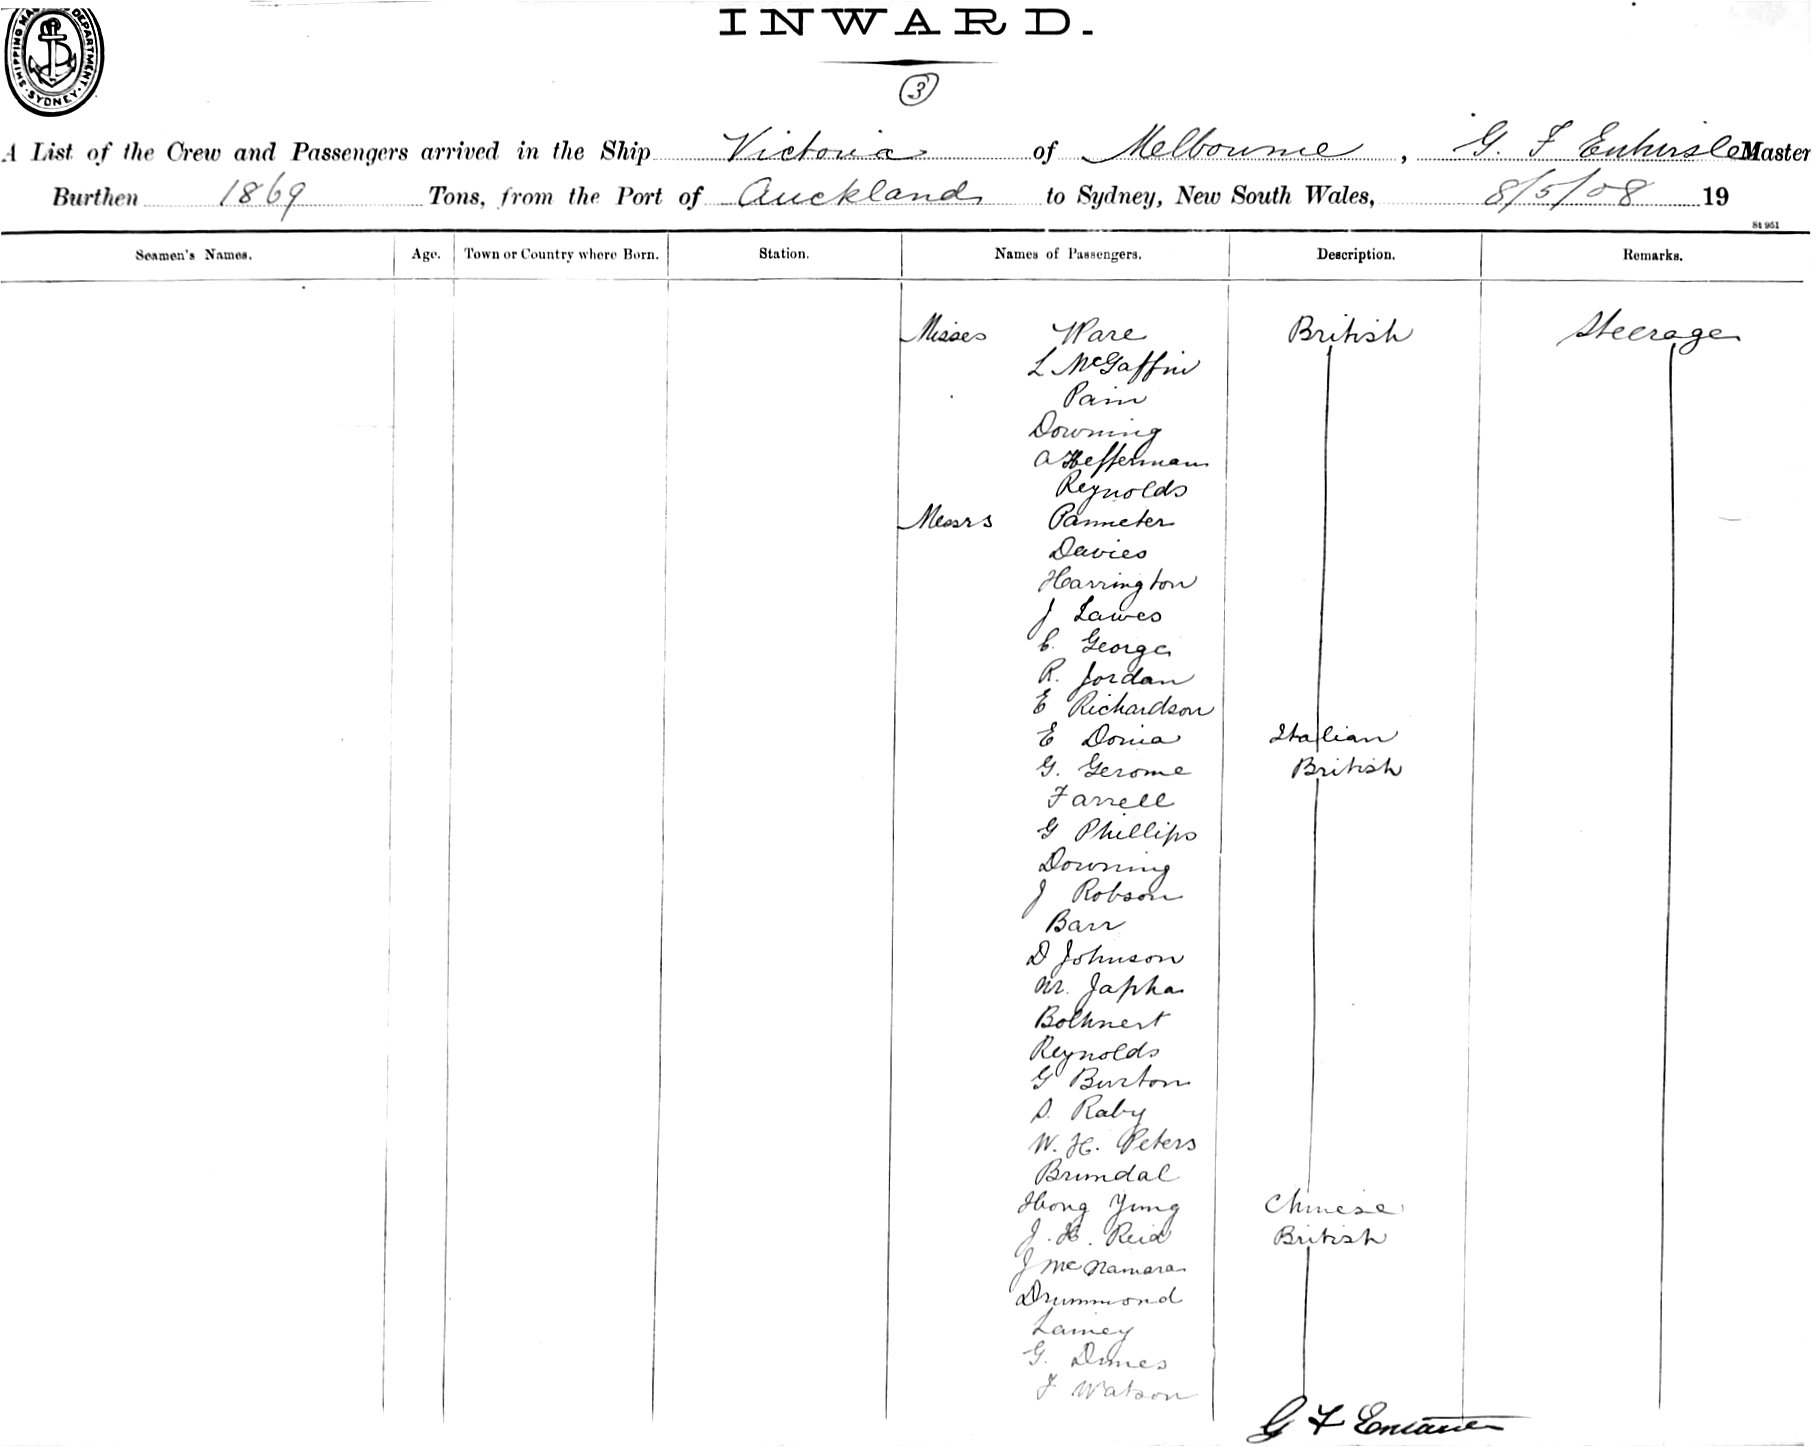 INWARD.
SHIPPING MA DEPARTMENT. SYDNEY.
3
A List of the Crew and Passengers arrived in the Ship Victoria of Melbourne, G. F Master
Burthen 1869 Tons, from the Port of Auckland to Sydney, New South Wales, 8/5/08 19
St 951
Seamen's Names. Age. Town or Country where Born. Station. Names of Passengers. Description. Remarks.
Misses Ware British Steerage
L McGaffin
Pain
Downing
A Heffernan
Reynolds
Messrs Panneter
Davies
Harrington
J Lawes
C. George
R. Jordan
E Richardson
E Doria Italian
G. Gerome British
Farrell
G Phillips
Downing
J Robson
Barr
D Johnson
M. Japha
Bolhnert
Reynolds
G Burton
S. Raby
W. H. Peters
Brundal
Hong Yung Chinese
J. H. Reid British
J McNamara
Drummond
Lamey
G. Dimes
F Watson
G F